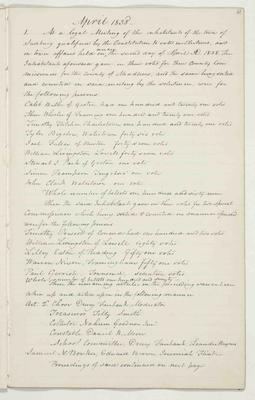 April 1838.
1. At a legal Meeting of the inhabitants of the town of
Sudbury qualified by the Constitution to vote in elections, and
in town affairs held on the second day of April A.D. 1838, the
Inhabitants aforesaid gave in their votes for three County Com-
missioners for the County of Middlesex, and the same being sorted
and counted in said meeting by the selectmen, were for
the following persons
Caleb of Groton had one hundred and twenty one votes
of one hundred and twenty one votes
Timothy Fletcher Charlestown one hundred and twenty one votes
Tyler Bigelow, Watertown forty six votes
forty seven votes
William Livingston, Lowell forty seven votes
Stewart J. Park of Groton one vote
Simon Thompson Tyngsboro one vote
John Clark Watertown one vote
Whole number of ballots one hundred and sixty seven
Then the said Inhabitants gave in their votes for two special
Commissioners which being sorted & counted in manner aforesaid
were for the following persons
Timothy Prescott of Concord had one hundred and two votes
William Livingston of Lowell eighty votes
Eaton of Reading fifty two votes
Warren Nixon, Framingham fifty one votes
Paul Gerrish, Townsend seventeen votes
Whole number of ballots
Then the remaining articles in the preceding warrant were
taken up and acted upon in the following manner
Art. 2. Chose Drury Fairbank Moderator
Treasurer
Collector Nahum Goodnow
Constable Daniel
School Committee Drury Fairbank,
Samuel Edward
Proceedings of same continued on next page